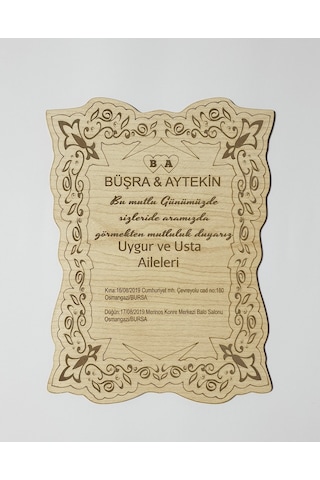 B A
BÜŞRA & AYTEKİN
Bu mutlu Günümüzde
sizleride aramızda
görmekten mutluluk duyarız
Uygur ve Usta
Aileleri
Kına:16/08/2019 Cumhuriyet mh. Çevreyolu cad no:160
Osmangazi/BURSA
Düğün:17/08/2019 Merinos Konre Merkezi Balo Salonu
Osmangazi/BURSA